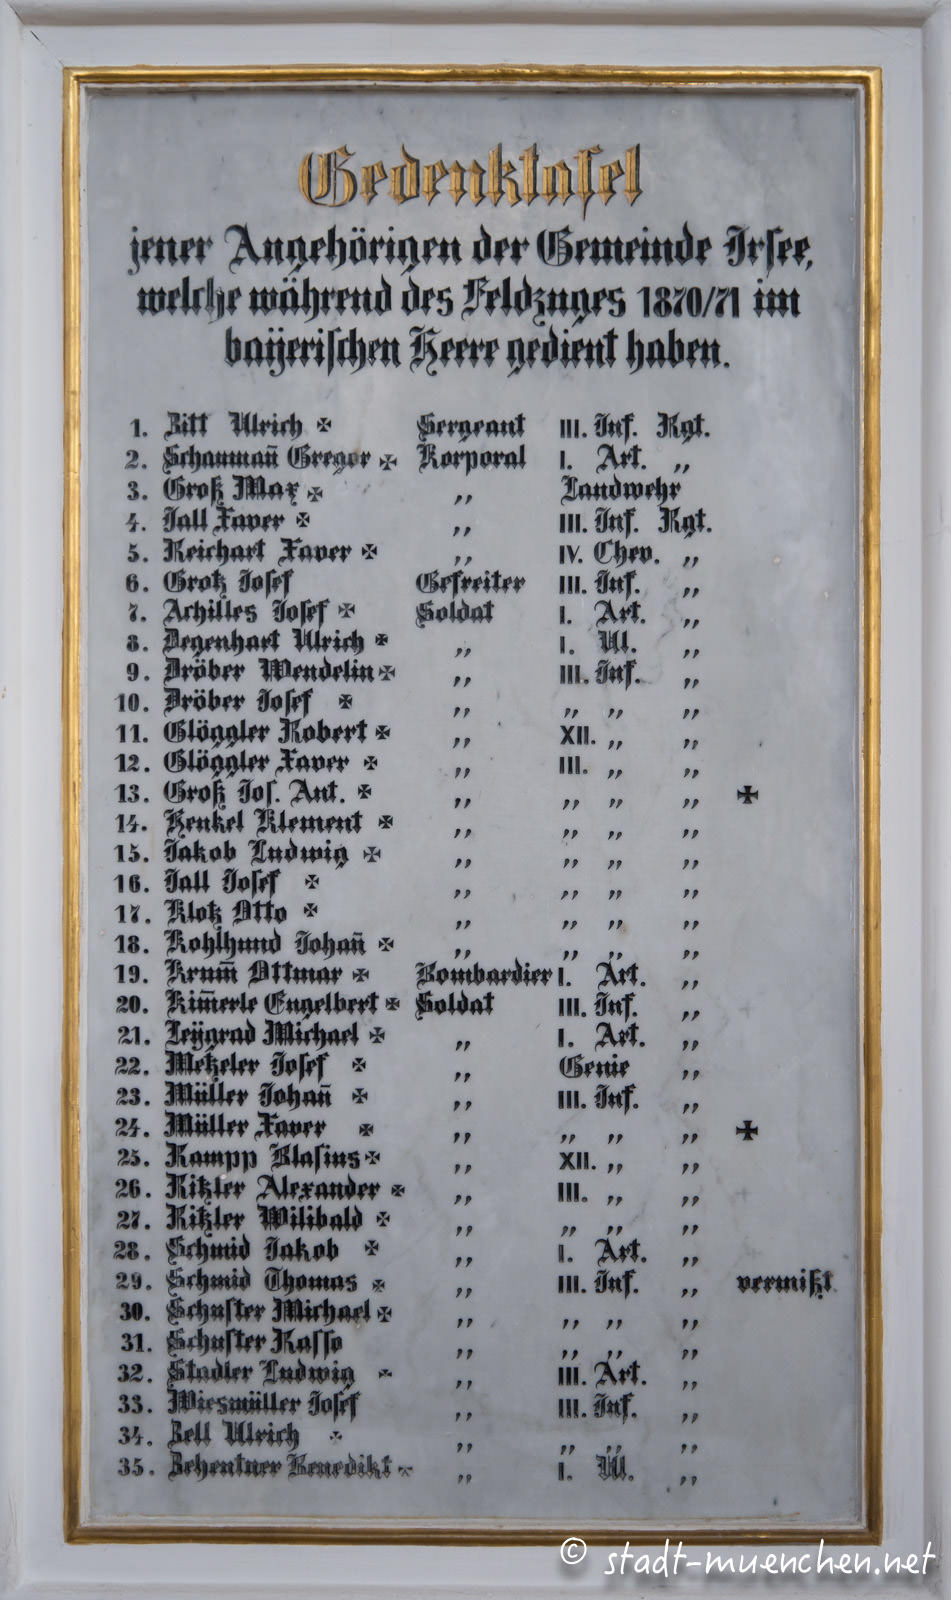 Gedenktafel
jener Angehörigen der Gemeinde Irsee,
welche während des Feldzuges 1870/71 im
bayerischen Heere gedient haben.
1. Zitt Ulrich ✠ Sergeant III. Inf. Rgt.
2. Schaumañ Gregor ✠ Korporal I. Art. „
3. Groß Max ✠ „ Landwehr
4. Jall Xaver ✠ „ III. Inf. Rgt.
5. Reichart Xaver ✠ „ IV. Chev. „
6. Grotz Josef Gefreiter III. Inf. „
7. Achilles Josef ✠ Soldat I. Art. „
8. Degenhart Ulrich ✠ „ I. Ul. „
9. Dröber Wendelin ✠ „ III. Inf. „
10. Dröber Josef ✠ „ „ „ „
11. Glöggler Robert ✠ „ XII. „ „
12. Glöggler Xaver ✠ „ III. „ „
13. Groß Jos. Ant. ✠ „ „ „ „ ✠
14. Henkel Klement ✠ „ „ „ „
15. Jakob Ludwig ✠ „ „ „ „
16. Jall Josef ✠ „ „ „ „
17. Klotz Otto ✠ „ „ „ „
18. Kohlhund Johañ ✠ „ „ „ „
19. Krum̃ Ottmar ✠ Bombardier I. Art. „
20. Kim̃erle Engelbert ✠ Soldat III. Inf. „
21. Leygrad Michael ✠ „ I. Art. „
22. Metzeler Josef ✠ „ Genie „
23. Müller Johañ ✠ „ III. Inf. „
24. Müller Xaver ✠ „ „ „ „ ✠
25. Rampp Blasius ✠ „ XII. „ „
26. Ritzler Alexander ✠ „ III. „ „
27. Ritzler Wilibald ✠ „ „ „ „
28. Schmid Jakob ✠ „ I. Art. „
29. Schmid Thomas ✠ „ III. Inf. „ vermißt
30. Schuster Michael ✠ „ „ „ „
31. Schuster Rasso „ „ „ „
32. Stadler Ludwig ✠ „ III. Art. „
33. Wiesmüller Josef „ III. Inf. „
34. Zell Ulrich ✠ „ „ „ „
35. Zehentner Benedikt ✠ „ I. Ul. „
© stadt-muenchen.net